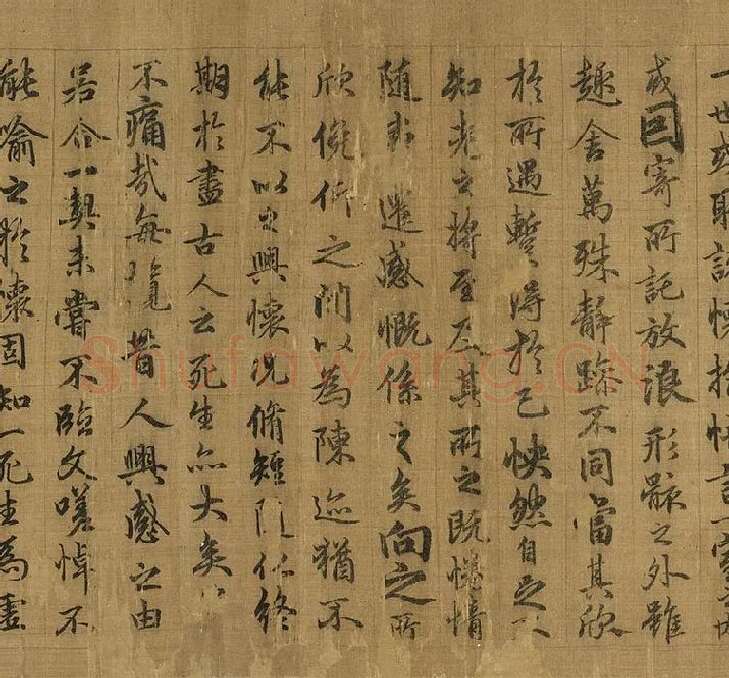 一世或取諸懷抱悟言一室之内
或因寄所託放浪形骸之外雖
趣舍萬殊靜躁不同當其欣
於所遇暫得於己怏然自足不
知老之將至及其所之既惓情
随事遷感慨係之矣向之所
欣俛仰之閒以為陳迹猶不
能不以之興懷況脩短随化終
期於盡古人云死生亦大矣
不痛哉每攬昔人興感之由
若合一契未嘗不臨文嗟悼不
能喻之於懷固知一死生為虛
Shufawang.CN